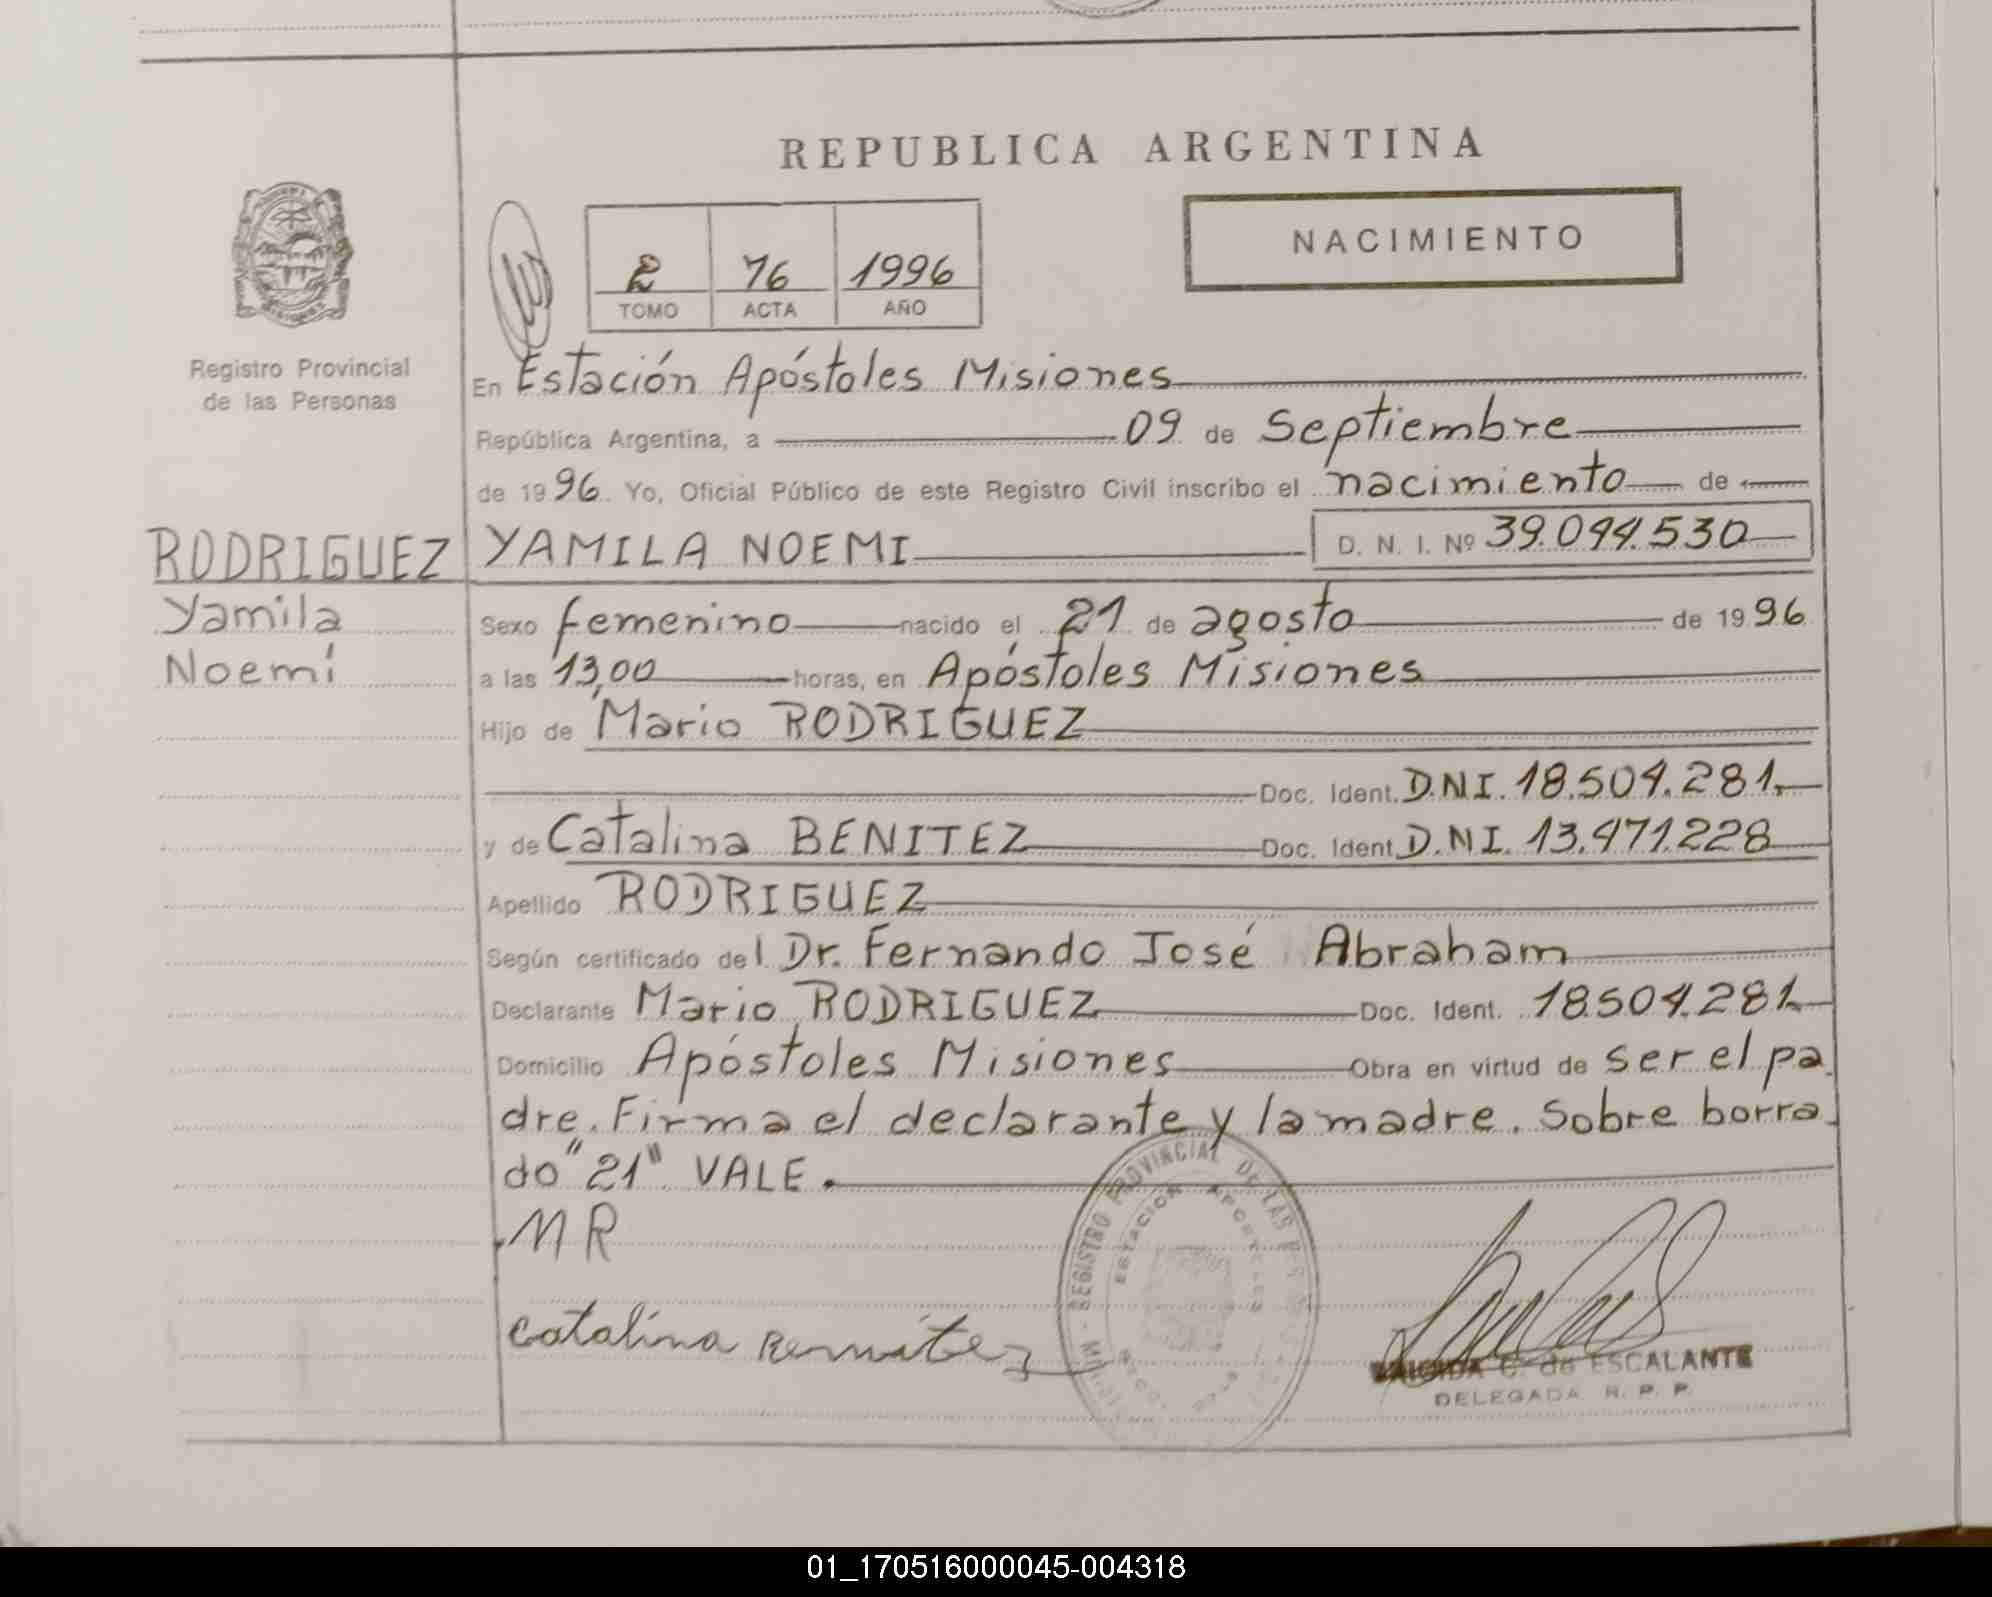 REPUBLICA ARGENTINA
NACIMIENTO
2 76 1996
TOMO ACTA AÑO
Registro Provincial
de las Personas
En Estación Apóstoles Misiones
República Argentina, a 09 de Septiembre
de 1996. Yo, Oficial Público de este Registro Civil inscribo el nacimiento de
RODRIGUEZ YAMILA NOEMI D. N. I. Nº 39.094.530
Yamila
Noemí
Sexo femenino nacido el 21 de agosto de 1996
a las 13,00 horas, en Apóstoles Misiones
Hijo de Mario RODRIGUEZ
Doc. Ident. D.N.I. 18.509.281.
y de Catalina BENITEZ Doc. Ident. D.N.I. 13.971.228
Apellido RODRIGUEZ
Según certificado del Dr. Fernando José Abraham
Declarante Mario RODRIGUEZ Doc. Ident. 18.509.281
Domicilio Apóstoles Misiones Obra en virtud de ser el pa
dre. Firma el declarante y la madre. Sobre borra
do "21" VALE.
MR
REGISTRO PROVINCIAL DE LAS
ESTACION APOSTOLES
Catalina
C. de ESCALANTE
DELEGADA R. P. P.
01_170516000045-004318